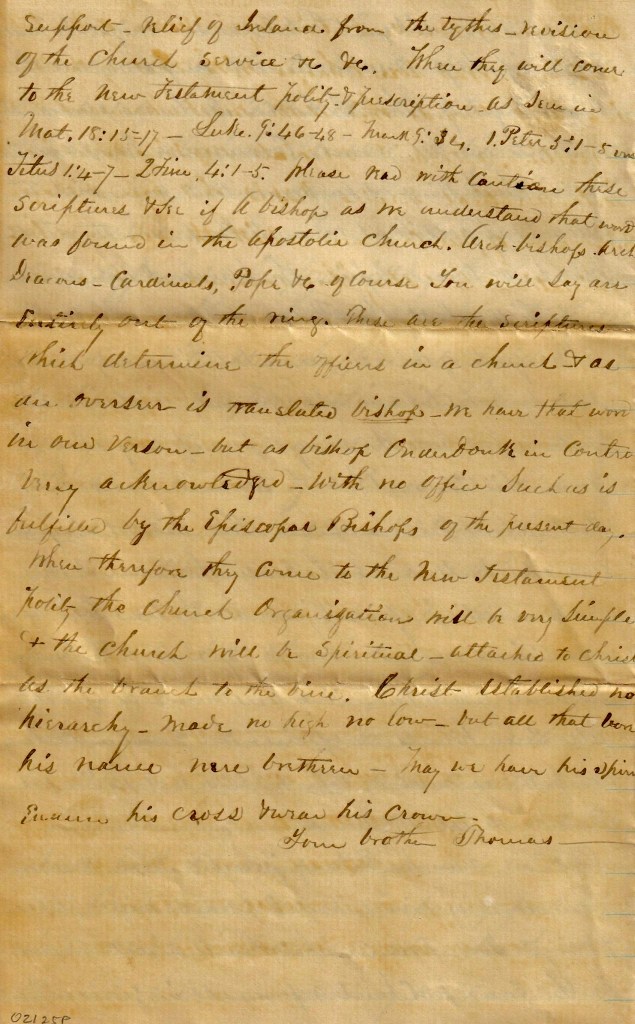 Support - relief of Ireland from the tythes - revision
of the Church Service &c &c. When they will come
to the New Testament polity & prescription as seen in
Mat. 18:15-17 - Luke. 9:46-48 - Mark 9:34. 1. Peter 5:1-5
Titus 1:4-7 - 2 Tim. 4:1-5. please read with caution these
Scriptures & see if A bishop as we understand that word
was found in the Apostolic Church. Arch-bishops Arch
Deacons - Cardinals, Pope &c of course You will say are
entirely out of the ring. These are the scriptures
which determine the officers in a church & as
an overseer is translated bishop - we have that word
in our verson - but as bishop OnderDonk in Contro
versy acknowledged - with no office such as is
fulfilled by the Episcopal Bishops of the present day.
When therefore they come to the New Testament
polity the Church Organization will be very simple
& the church will be Spiritual - attached to Christ
as the branch to the vine. Christ established no
hierarchy - made no high no low - but all that bore
his name were bretheren - May we have his spirit
Endure his cross & wear his Crown.
Your brother Thomas
02125P